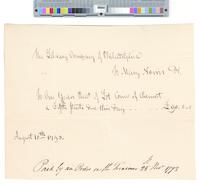 The Library Company of Philadelphia
To Mary Norris Dr.
To One Years Rent of Lot Corner of Chesnut
& Fifth Streets due this Day
August 10th 1793
Paid by an Order on the Treasurer 1793